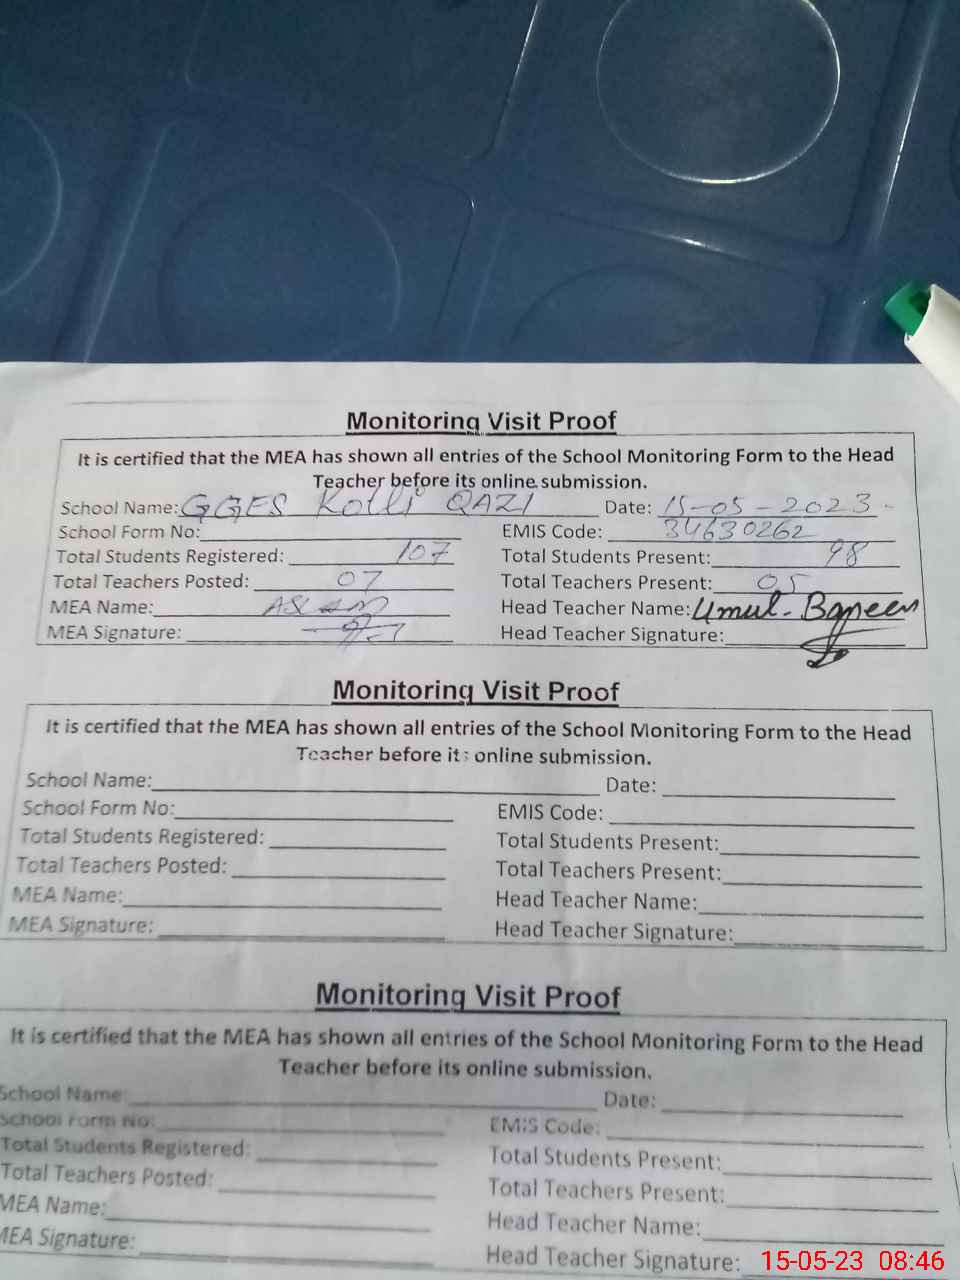 Monitoring Visit Proof
It is certified that the MEA has shown all entries of the School Monitoring Form to the Head
Teacher before its online submission.
School Name: GGES Kotli QAZI Date: 15-05-2023
School Form No: EMIS Code: 34630262
Total Students Registered: 107 Total Students Present: 98
Total Teachers Posted: 07 Total Teachers Present: 05
MEA Name: ASLAM Head Teacher Name: Umul-Baneen
MEA Signature: Head Teacher Signature:
Monitoring Visit Proof
It is certified that the MEA has shown all entries of the School Monitoring Form to the Head
Teacher before its online submission.
School Name: Date:
School Form No: EMIS Code:
Total Students Registered: Total Students Present:
Total Teachers Posted: Total Teachers Present:
MEA Name: Head Teacher Name:
MEA Signature: Head Teacher Signature:
Monitoring Visit Proof
It is certified that the MEA has shown all entries of the School Monitoring Form to the Head
Teacher before its online submission.
School Name: Date:
School Form No: EMIS Code:
Total Students Registered: Total Students Present:
Total Teachers Posted: Total Teachers Present:
MEA Name: Head Teacher Name:
MEA Signature: Head Teacher Signature:
15-05-23 08:46